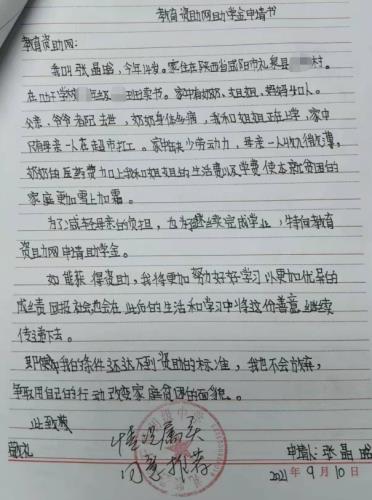 教育资助网助学金申请书
教育资助网:
我叫张晶晗,今年14岁。家住在陕西省咸阳市礼泉县 村。
在 学校 年级 班读书。家中有奶奶、姐姐、妈妈4口人。
父亲、爷爷都已去世,奶奶身体多病,我和姐姐正在上学,家中
只有母亲一人在超市打工。家中缺少劳动力,母亲一人收入微薄,
奶奶的医药费加上我和姐姐的生活费以及学费使本就贫困的
家庭更加雪上加霜。
为了减轻母亲的负担,也为继续完成学业,特向教育
资助网申请助学金。
如能获得资助,我将更加努力好好学习以更加优异的
成绩回报社会也会在此后的生活和学习中将这份善意继续
传递下去。
即使我的条件还达不到资助的标准,我也不会放弃,
争取用自己的行动改变家庭贫困的面貌。
此致
敬礼
情况属实
同意推荐
申请人:张晶晗
2021年9月10日